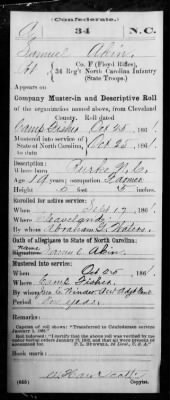 Confederate.
34 N.C.
Samuel Akin
Pvt Co. F (Floyd Rifles),
34 Reg't North Carolina Infantry
(State Troops.)
Appears on
Company Muster-in and Descriptive Roll
of the organization named above, from Cleveland
County. Roll dated
Camp Fisher Oct 25, 1861.
Mustered into service of
State of North Carolina, Oct 25, 1861.
to date
Description:
Where born Burke N.C.
Age years; occupation Farmer
Height 6 feet 5 inches.
Enrolled for active service:
When Sept 17, 1861.
Where Cleveland
By whom Abraham G. Waters
Oath of allegiance to State of North Carolina:
Name Samuel Akin
Mustered into service:
When Oct 25, 1861.
Where Camp Fisher
By whom
Period
Remarks:
Caption of roll shows: "Transferred to Confederate service
January 1, 1862."
Book mark:
Copyist.